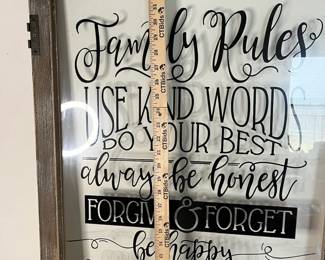 Family Rules
USE KIND WORDS
DO YOUR BEST
always be honest
FORGIVE & FORGET
be happy
CTBids
CTBids
CTBids